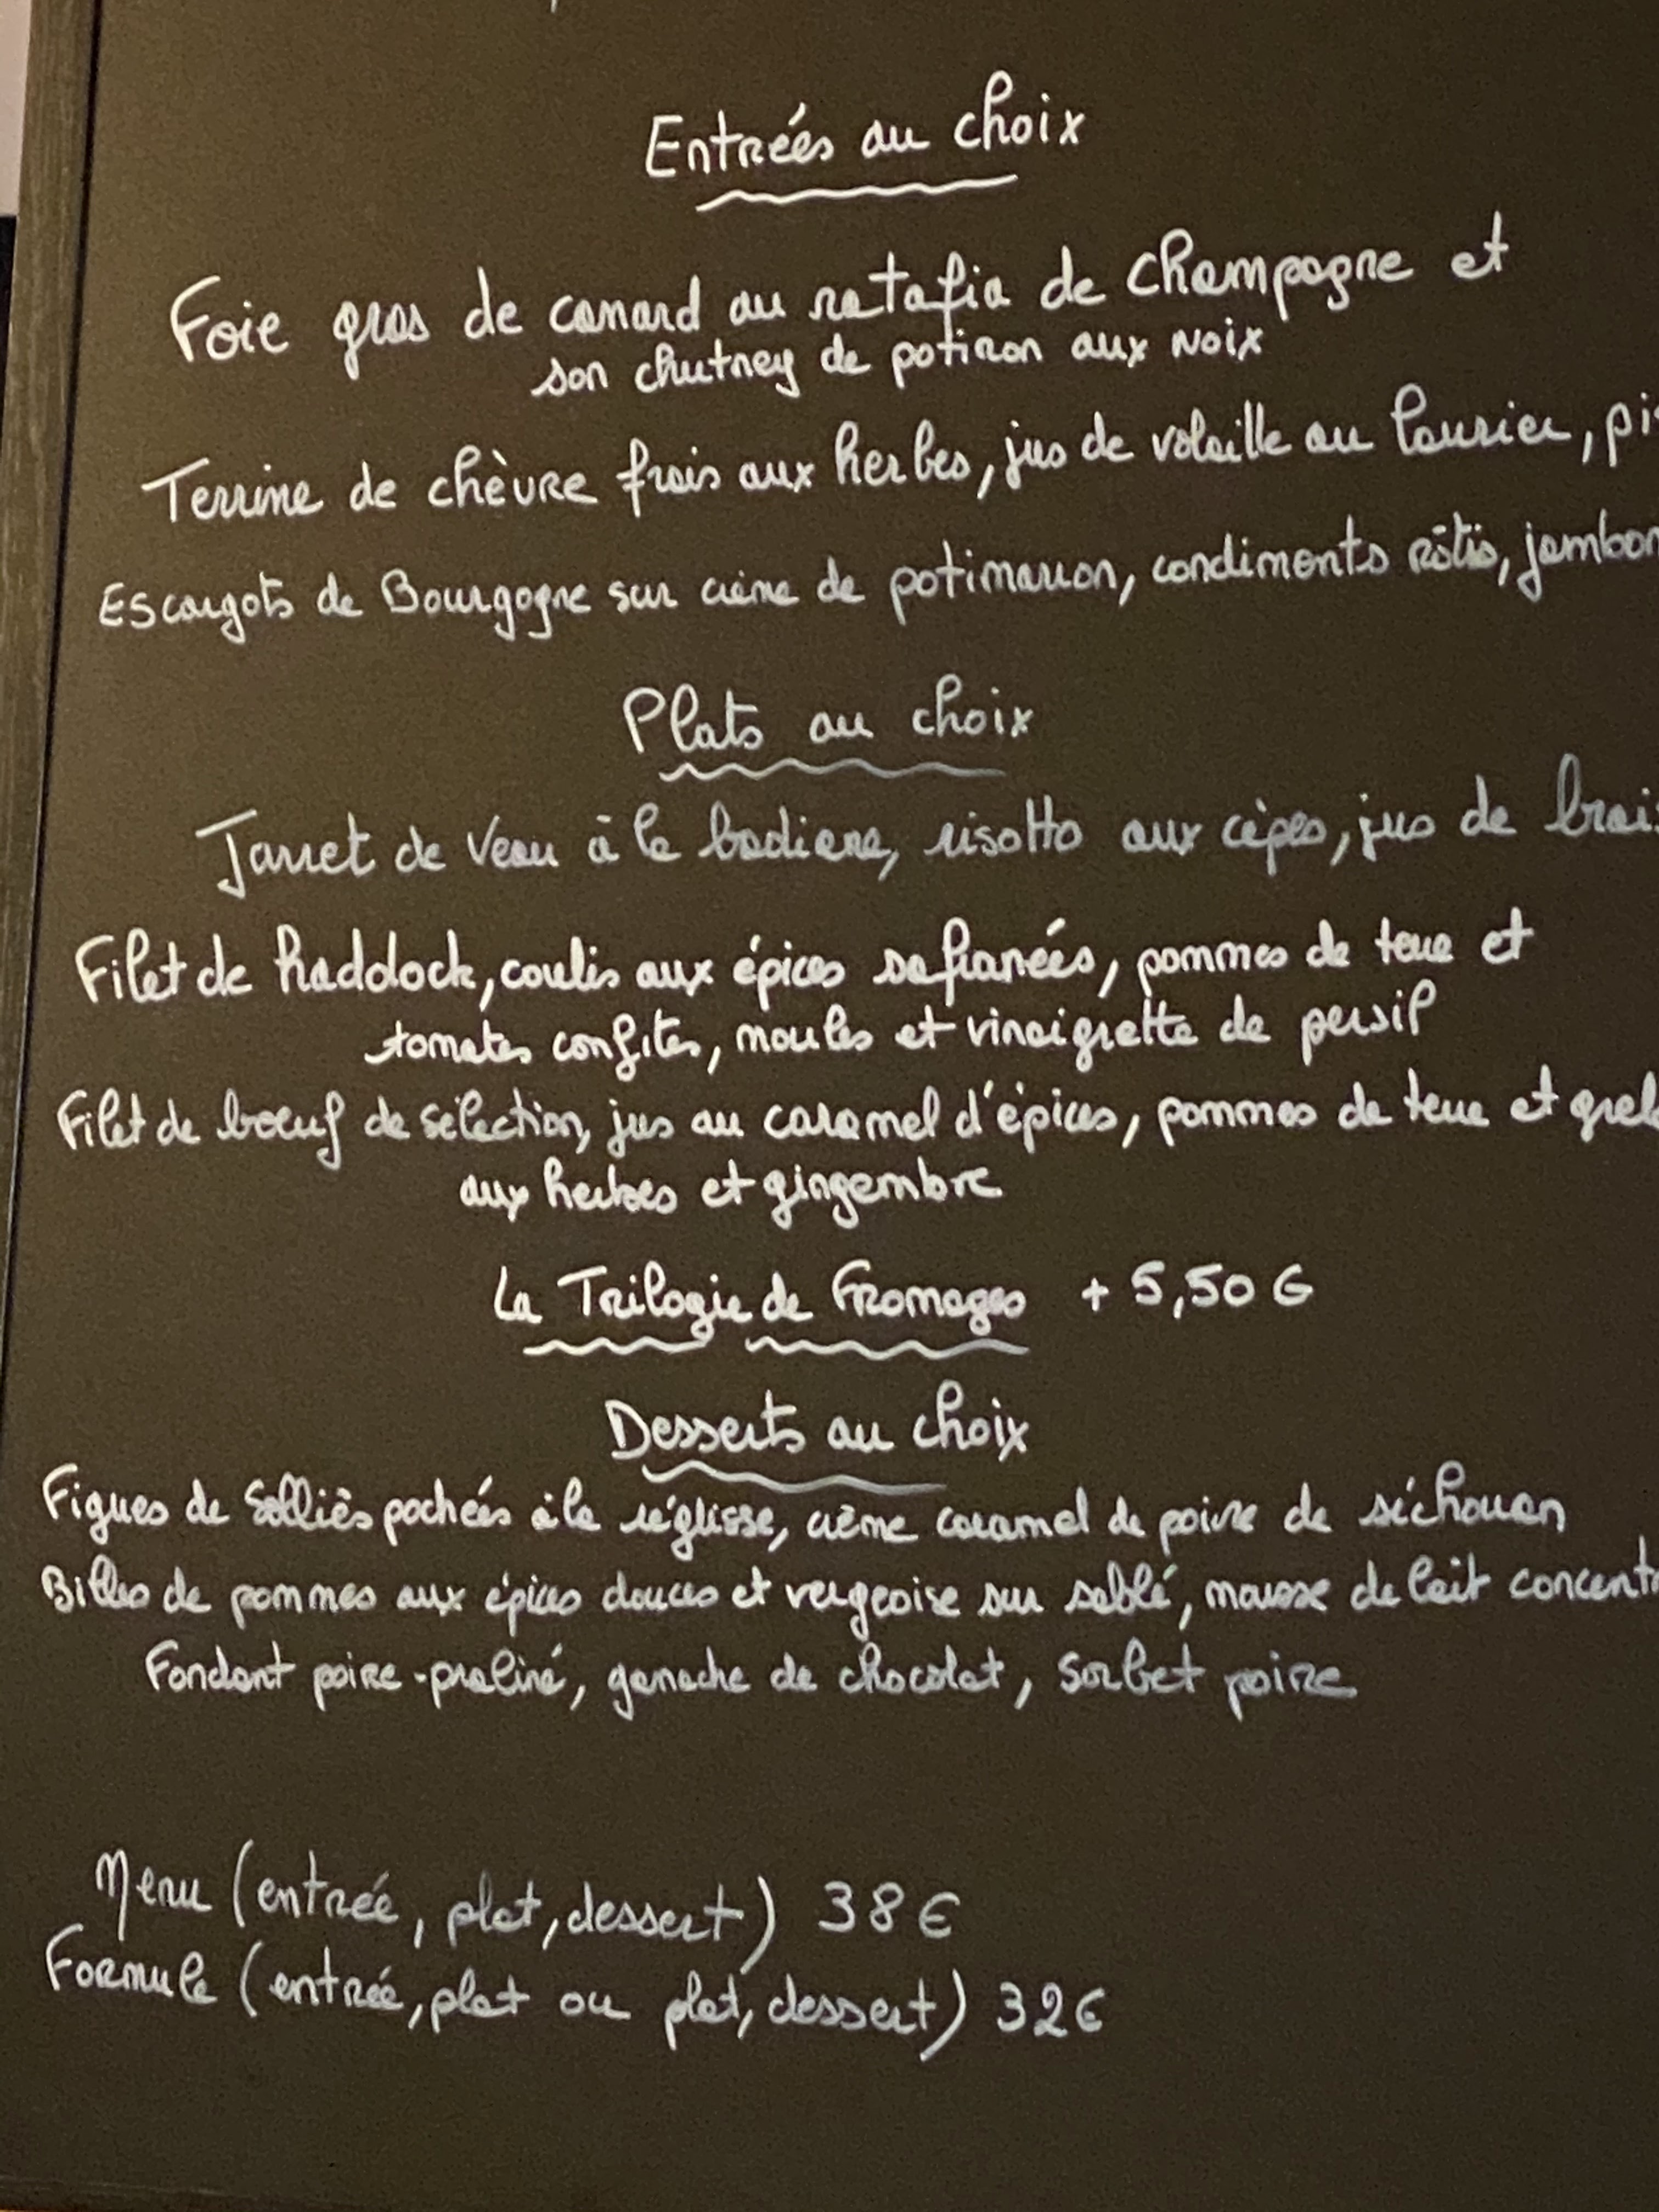 Entrées au choix
Foie gras de canard au ratafia de Champagne et
son chutney de potiron aux noix
Terrine de chèvre frais aux herbes, jus de volaille au laurier, pi
Escargots de Bourgogne sur crème de potimarron, condiments rôtis, jambon
Plats au choix
Jarret de veau à la badiane, risotto aux cèpes, jus de brais
Filet de haddock, coulis aux épices safranées, pommes de terre et
tomates confites, moules et vinaigrette de persil
Filet de boeuf de sélection, jus au caramel d'épices, pommes de terre et grel
aux herbes et gingembre
La Trilogie de Fromages + 5,50 €
Desserts au choix
Figues de Solliès pochées à la réglisse, crème caramel de poivre de séchouan
Billes de pommes aux épices douces et vergeoise sur sablé, mousse de lait concentr
Fondant poire-praliné, ganache de chocolat, sorbet poire
Menu (entrée, plat, dessert) 38€
Formule (entrée, plat ou plat, dessert) 32€